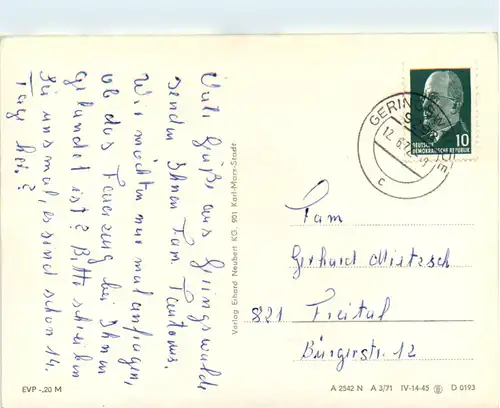 Viele Grüße aus Geringswalde
senden Ihnen Fam. Tautorus.
Wir möchten nur mal anfragen,
ob das Fahrzeug bei Ihnen
gelandet ist? Bitte schreiben
Sie uns mal, es sind schon 14.
Tage her.?
Verlag Erhard Neubert KG, 901 Karl-Marx-Stadt
GERINGSW
12.6.7
c
10
DEUTSCHE
DEMOKRATISCHE REPUBLIK
Fam
Gerhard Mietzsch
821 Freital
Bürgerstr. 12
EVP -,20 M
A 2542 N A 3/71 IV-14-45 D 0193